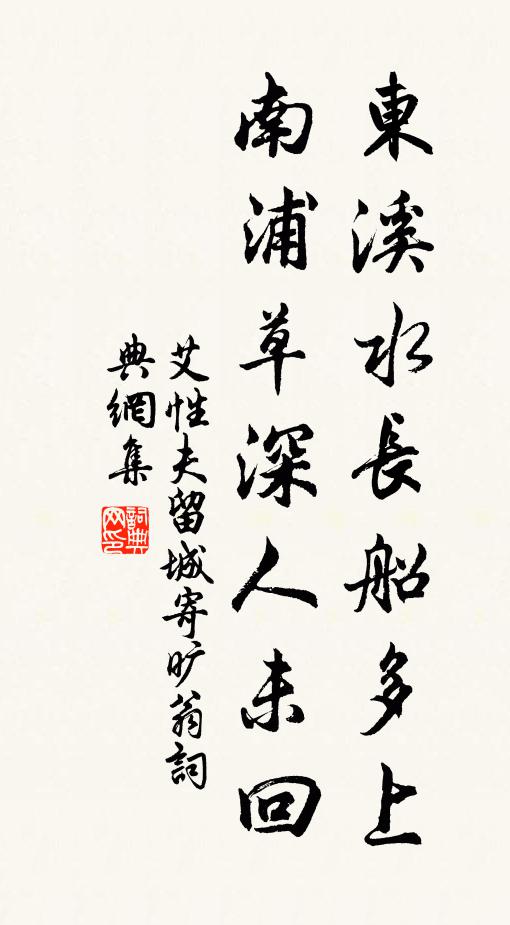 東溪水長船多上
南浦草深人未回
艾性夫留城寄旷翁詞
典網集
詞典网印